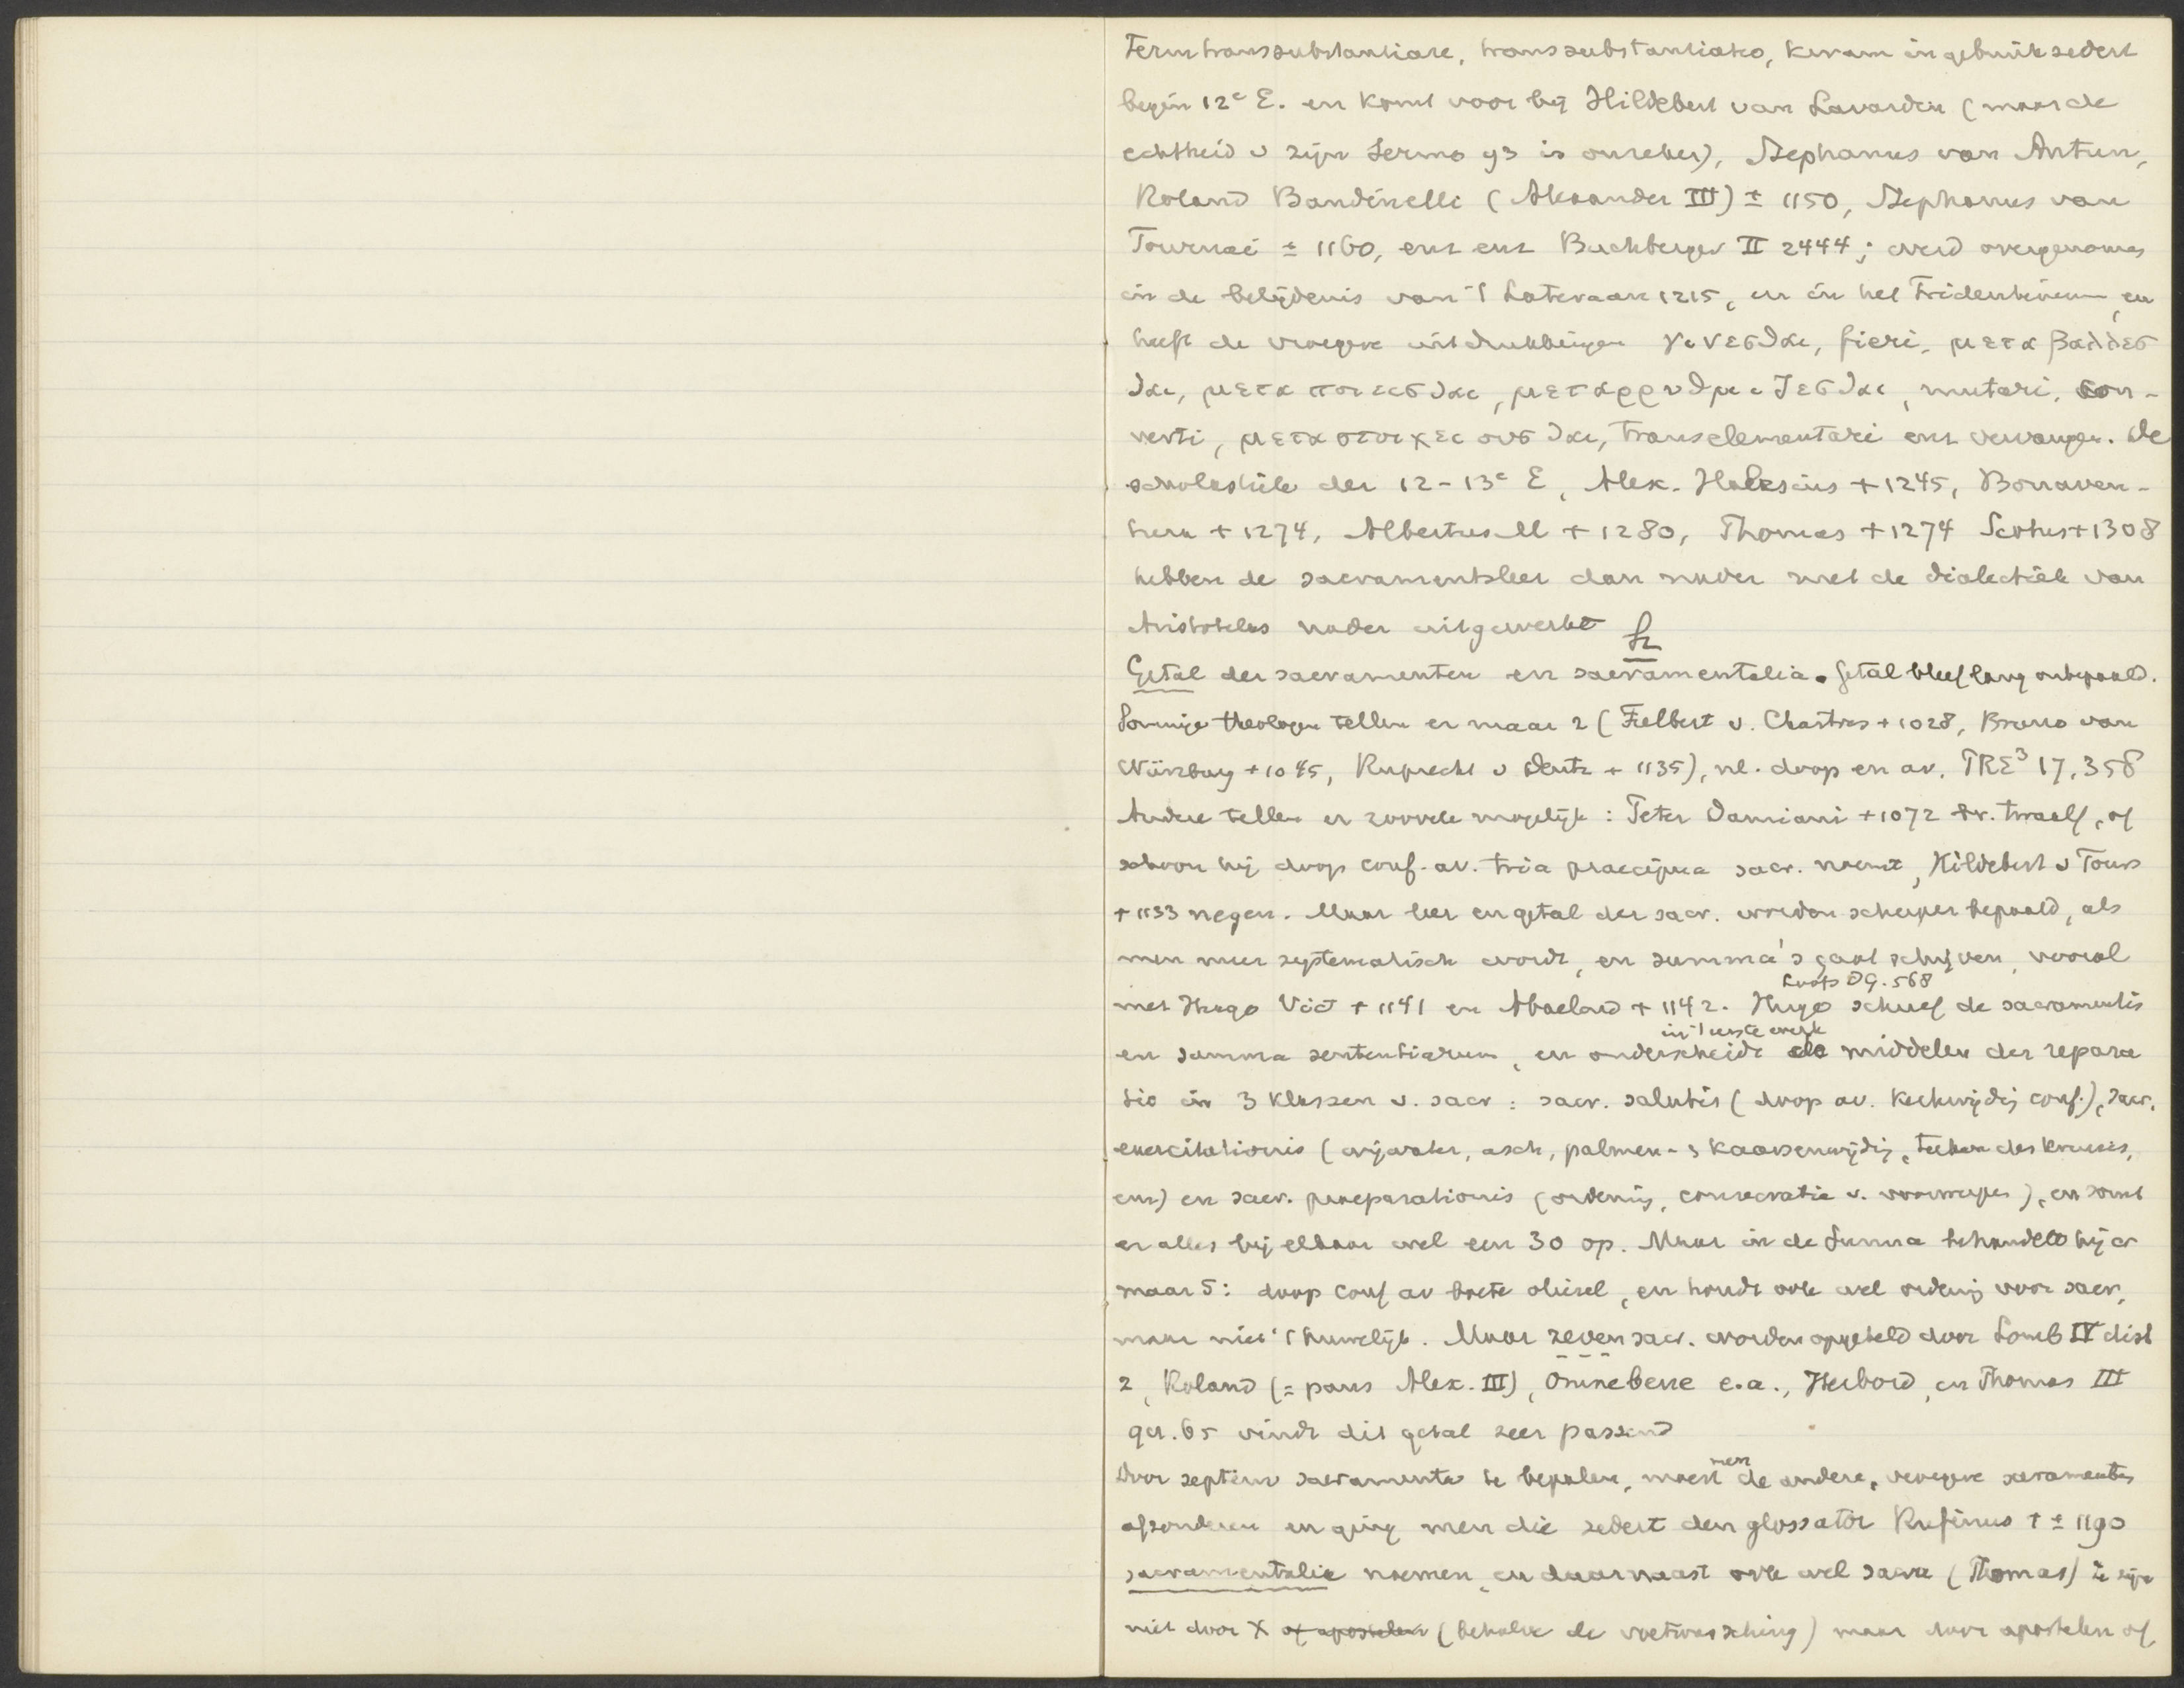 Term transsubstantiare, transsubstantiatio, kwam in gebruik sedert
begin 12e E. en komt voor bij Hildebert van Lavardin (maar de
echtheid v zijn Sermo 93 is onzeker), Stephanus van Autun,
Roland Bandinelli (Alexander III) ± 1150, Stephanus van
Tournai ± 1160, enz enz Buchberger II 2444; werd overgenomen
in de belijdenis van 't Lateraan 1215, en in het Tridentinum, en
heeft de vroegere uitdrukkingen γινεσθαι, fieri, μεταβαλλεσ
θαι, μεταποιεισθαι, μεταρρυθμιζεσθαι, mutari, con-
verti, μεταστοιχειουσθαι, transelementari enz vervangen. De
scholastiek der 12-13e E, Alex. Halesius +1245, Bonaven-
tura +1274, Albertus M +1280, Thomas +1274 Scotus +1308
hebben de sacramentsleer dan nader met de dialectiek van
Aristoteles nader uitgewerkt
Getal der sacramenten en sacramentalia. Getal bleef lang onbepaald.
Sommige theologen tellen er maar 2 (Fulbert v. Chartres +1028, Bruno van
Würzburg +1045, Ruprecht v Deutz +1135), nl. doop en av. PRE3 17,358
Andere tellen er zoovele mogelijk: Peter Damiani +1072 twaalf, of
schoon hij doop conf. av. tria praecipua sacr. noemt, Hildebert v Tours
+1133 negen. Maar leer en getal der sacr. worden scherper bepaald, als
men meer systematisch wordt, en summa's gaat schrijven, vooral
Loofs DG. 568
met Hugo Vict +1141 en Abaelard +1142. Hugo schreef de sacramentis
in 't eerste werk
en summa sententiarum, en onderscheidt de middelen der repara
tio in 3 klassen v. sacr: sacr. salutis (doop av. kerkwijding conf.), sacr.
exercitationis (wijwater, asch, palmen- & kaarsenwijding, teeken des kruises,
enz) en sacr. praeparationis (ordening, consecratie v. voorwerpen), en somt
er alles bij elkaar wel een 30 op. Maar in de Summa behandelt hij er
maar 5: doop conf av boete oliesel, en houdt ook wel ordening voor sacr.
maar niet 't huwelijk. Maar zeven sacr. worden opgeteld door Lomb IV dist
2, Roland (= paus Alex. III), Omnebene e.a., Herbord, en Thomas III
qu. 65 vindt dit getal zeer passend
Door septem sacramenta te bepalen, moest men de andere, vroegere sacramenten
afzonderen en ging men die sedert den glossator Rufinus + ± 1190
sacramentalia noemen, en daarnaast ook wel sacra (Thomas) ze zijn
niet door X of apostelen (behalve de voetwassching) maar door apostelen of